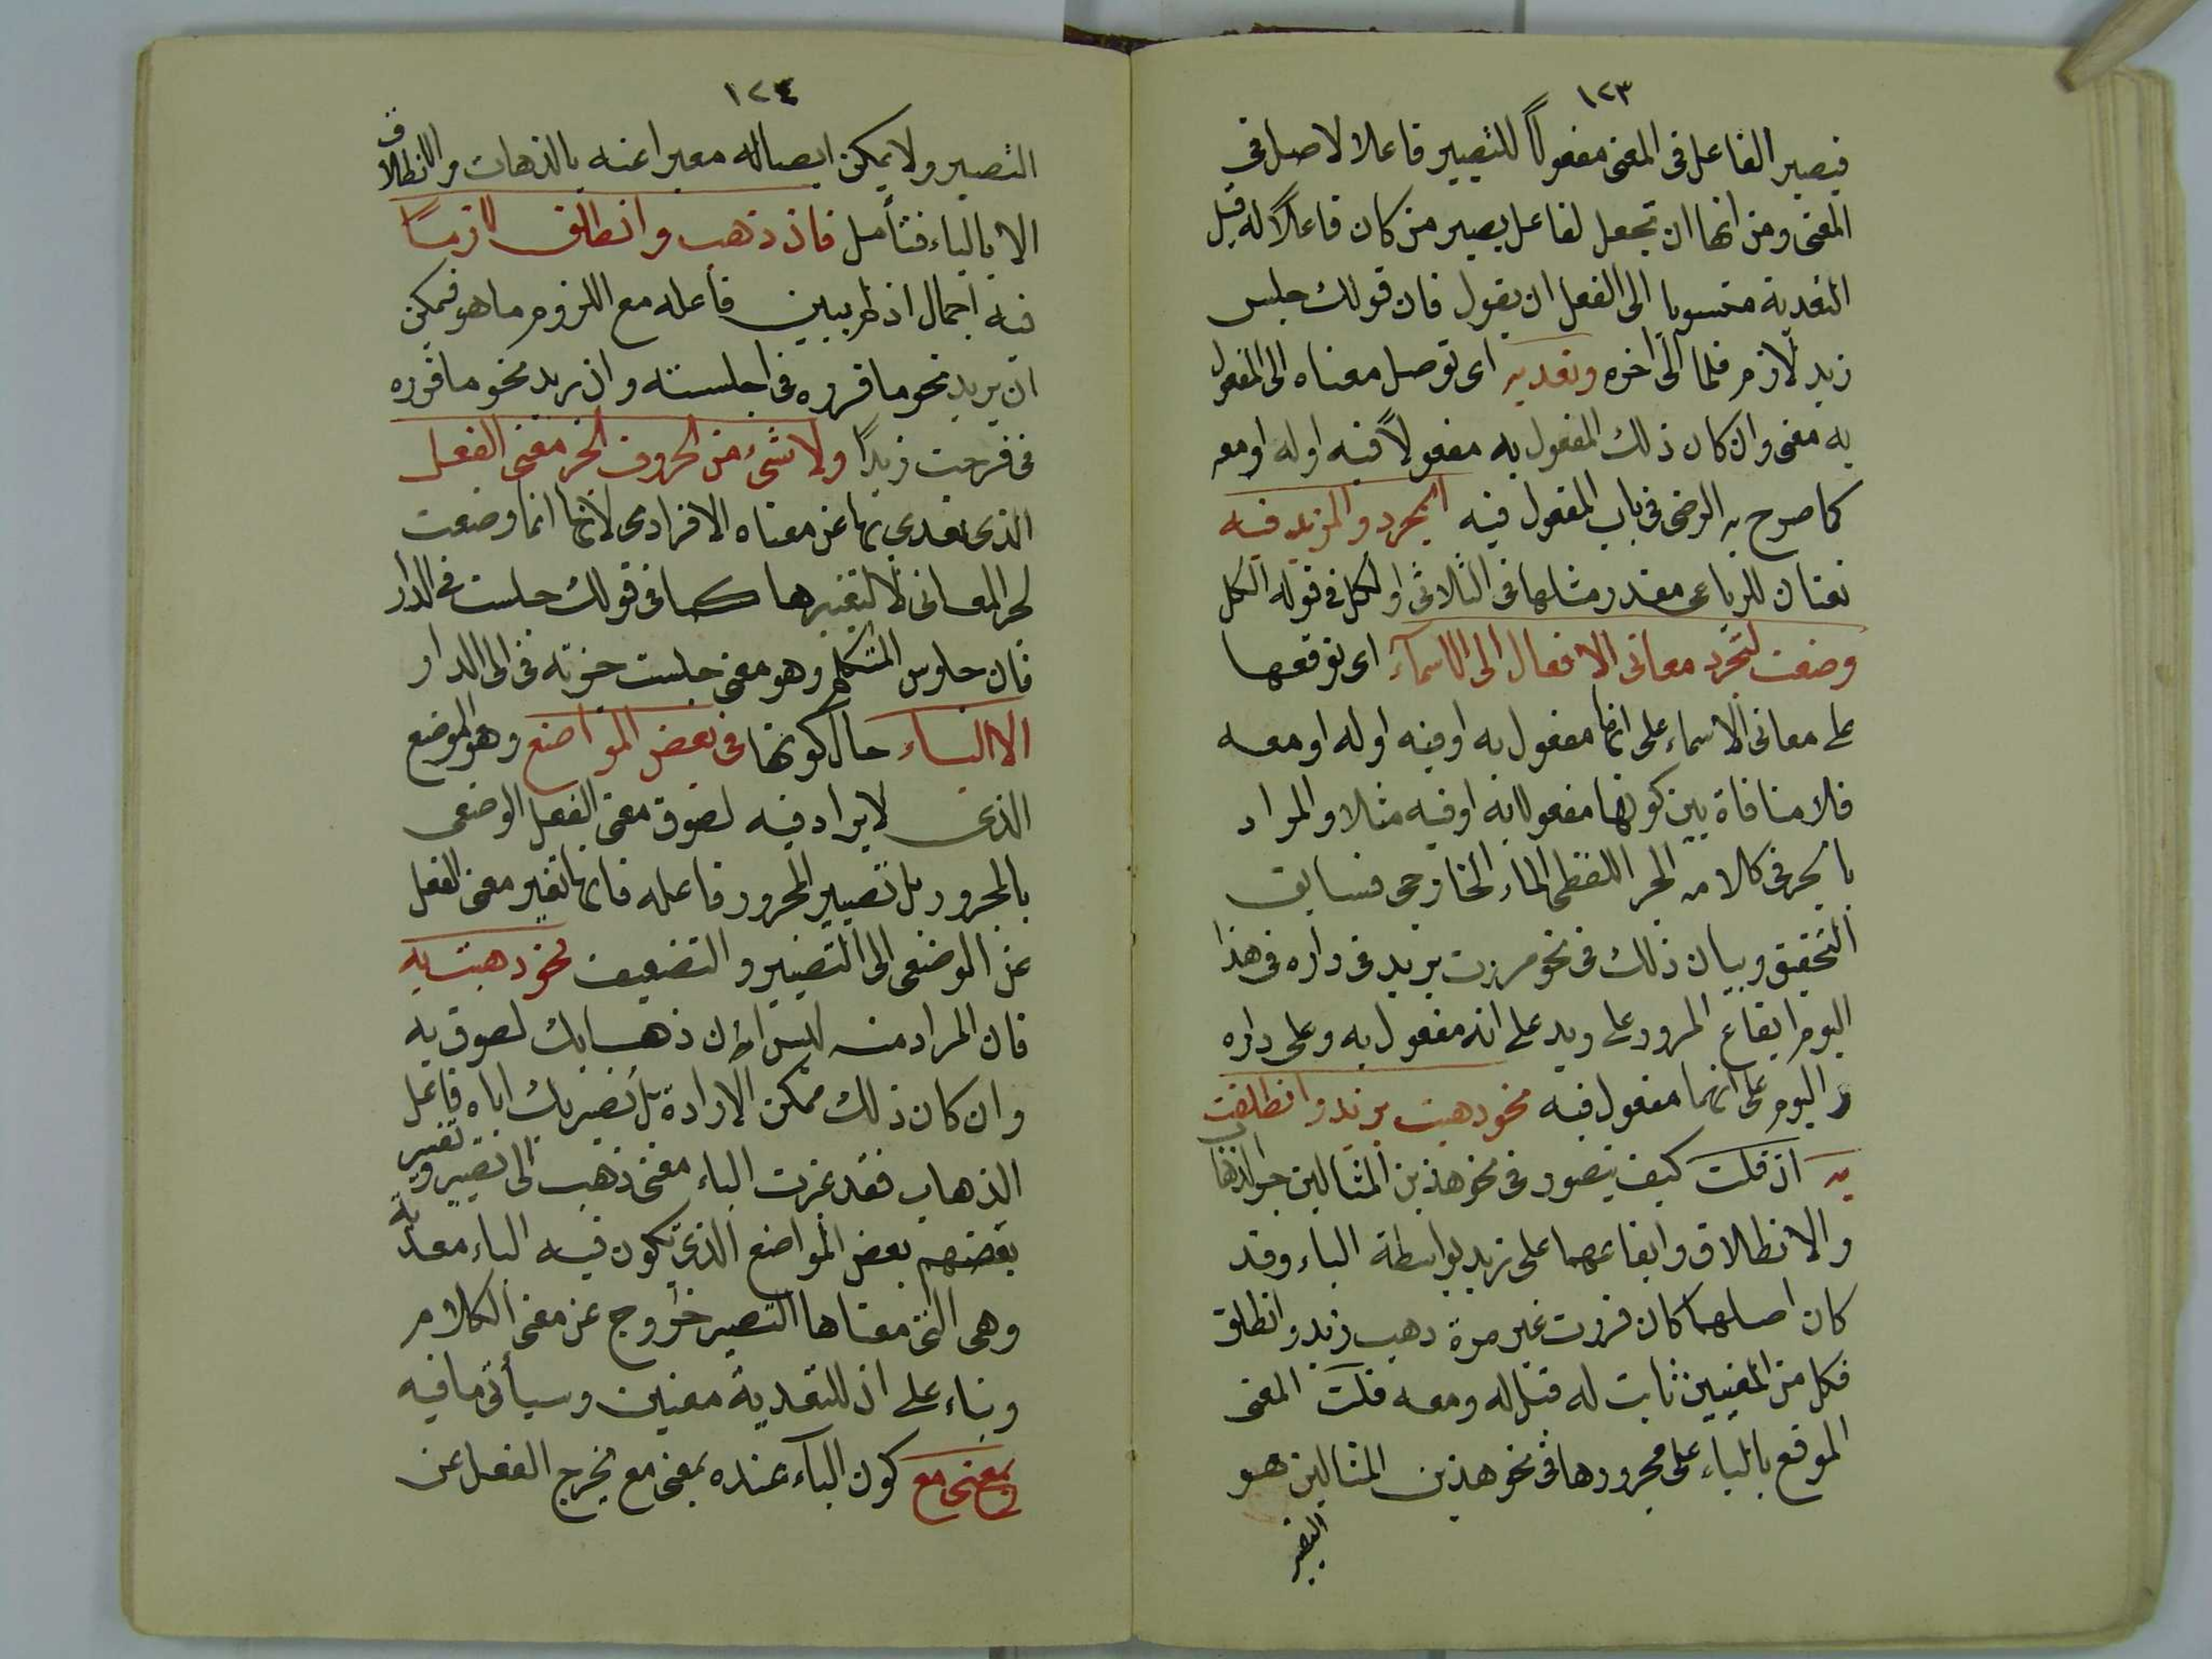 ١٢٣
فيصير الفاعل فى المعنى مفعولاً للتصيير فاعلا لاصل فى
المعنى ومن انها ان تجعل لفاعل يصير من كان فاعلاً له قبل
التعدية منسوبا الى الفعل ان يقول فان قولك جلس
زيد لازم فلما الى اخره وتعديه اى توصل معناه الى المفعول
به معنى وان كان ذلك المفعول به مفعولاً فيه او له او معه
كما صرح به الرضى فى باب المفعول فيه المجرد والمزيد فيه
نعتان للرباعى مقدر مثلها فى الثلاثى او لكل فى قوله الكل
وضعت لتجرد معانى الافعال الى الاسمآء اى توقعها
على معانى الاسماء على انها مفعول به او فيه او له او معه
فلا منافاة بين كونها مفعولا به او فيه مثلا والمراد
بالجر فى كلامه الجر اللفظى الخارجى فسابق
التحقيق وبيان ذلك فى نحو مررت بزيد فى داره فى هذا
اليوم ايقاع المرور على زيد على انه مفعول به وعلى داره
واليوم على انهما مفعول فيه نحو ذهبت بزيد وانطلقت
به ان قلت كيف يتصور فى نحو هذين المثالين جر الذهاب
والانطلاق وايقاعهما على زيد بواسطة الباء وقد
كان اصلهما كان قررت غير مرة ذهب زيد وانطلق
فكل من المعنيين ثابت له قبل له ومعه قلت المعنى
الموقع بالباء على مجرورها فى نحو هذين المثالين هو
التصير
١٢٤
التصير ولا يمكن ايصاله معبرا عنه بالذهاب والانطلاق
الا بالباء فتأمل فان ذهب وانطلق لازمًا
فيه اجمال اذ لم يبين فاعله مع اللزوم ما هو فيمكن
ان يريد نحو ما قرره فى اجلسته وان يريد نحو ما قرره
فى فرحت زيدًا ولا شئ من الحروف الجر معنى الفعل
الذى تعدى بها عن معناه الافرادى لانها انما وضعت
لجر المعانى لا لتغيرها كما فى قولك جلست فى الدار
فان جلوس المتكلم وهو معنى جلست جرته فى الى الدار
الا الباء حال كونها فى بعض المواضع وهو الموضع
الذى لا يراد فيه لصوق معنى الفعل الوضعى
بالمجرور بل تصيير المجرور فاعله فانها تغير معنى الفعل
عن الوضعى الى التصيير والتضعيف نحو ذهبت به
فان المراد منه ليس ان ذهابك لصوق به
وان كان ذلك ممكن الارادة بل تصيرك اياه فاعل
الذهاب فقد غيرت الباء معنى ذهب الى تصيير وتغير
بعضهم بعض المواضع الذى تكون فيه الباء معدية
وهى التى معناها التصير خروج عن معنى الكلام
وبناء على ان للتعدية معنين وسيأتى ما فيه
بمعنى مع كون البآء عنده بمعنى مع يخرج الفعل عن